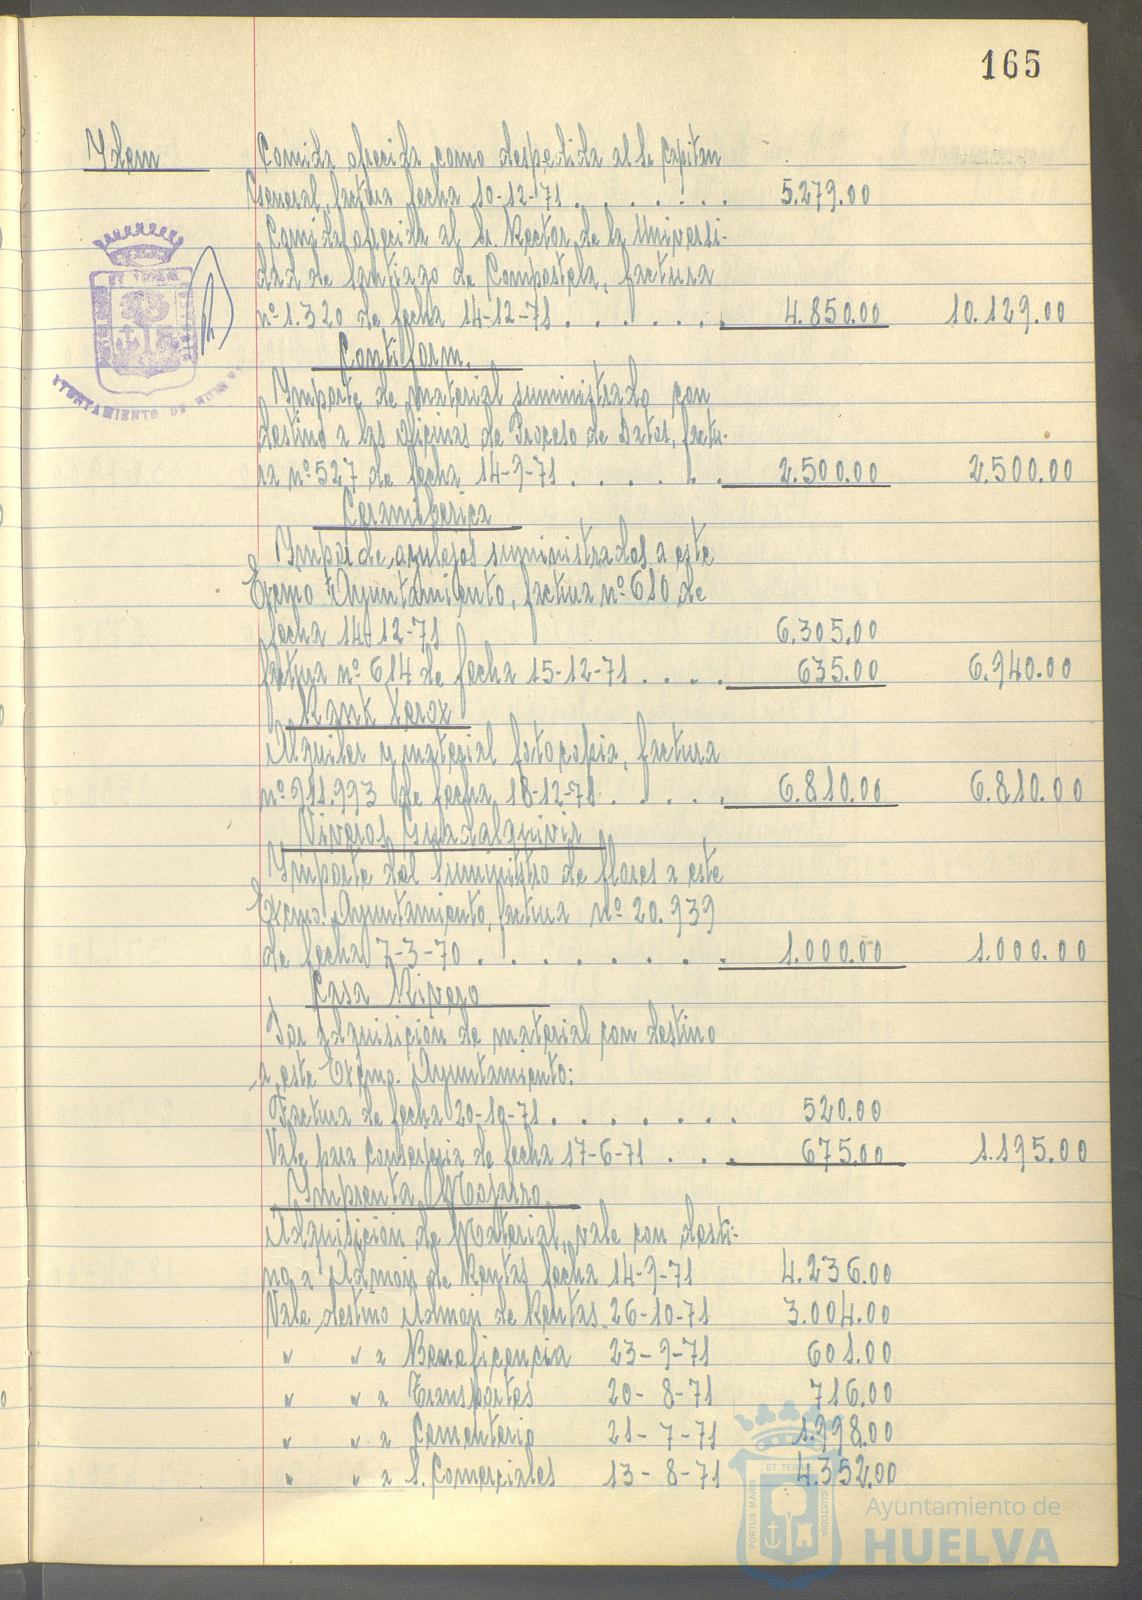 165
Idem
Comida ofrecida como despedida al Sr. Capitan
General, factura fecha 10-12-71 . . . . . . . 5.279.00
Comida ofrecida al Sr. Rector de la Universi-
dad de Santiago de Compostela, factura
nº 1.320 de fecha 14-12-71 . . . . . . . 4.850.00 10.129.00
Contiform.
Importe de material suministrado con
destino a las oficinas de Proceso de Datos, factu-
ra nº 527 de fecha 14-9-71 . . . . . . 2.500.00 2.500.00
Ceramiberica
de azulejos suministrados a este
Excmo Ayuntamiento, factura nº 610 de
fecha 14-12-71 6.305.00
factura nº 614 de fecha 15-12-71 . . . . 635.00 6.940.00
Rank Xerox
Alquiler y material fotocopia, factura
nº 911.993 de fecha 18-12-71 . . . . . 6.810.00 6.810.00
Viveros Guadalquivir
Importe del suministro de flores a este
Excmo. Ayuntamiento, factura nº 20.939
de fecha 7-3-70 . . . . . . . . 1.000.00 1.000.00
Casa Rivero
Por adquisicion de material con destino
a este Excmo. Ayuntamiento:
Factura de fecha 20-10-71 . . . . . . . 520.00
Vale para Conserjeria de fecha 17-6-71 . . . 675.00 1.195.00
Imprenta Mojarro
Adquisicion de Material, vale con desti-
no a Admon de Rentas fecha 14-9-71 4.236.00
Vale destino Admon de Rentas 26-10-71 3.004.00
" " a Beneficencia 23-9-71 601.00
" " a Transportes 20-8-71 716.00
" " a Cementerio 21-7-71 1.998.00
" " a S. Comerciales 13-8-71 4.352.00
AYUNTAMIENTO DE HUELVA
PORTUS MARIS ET TERRAE CUSTODIA
Ayuntamiento de
HUELVA